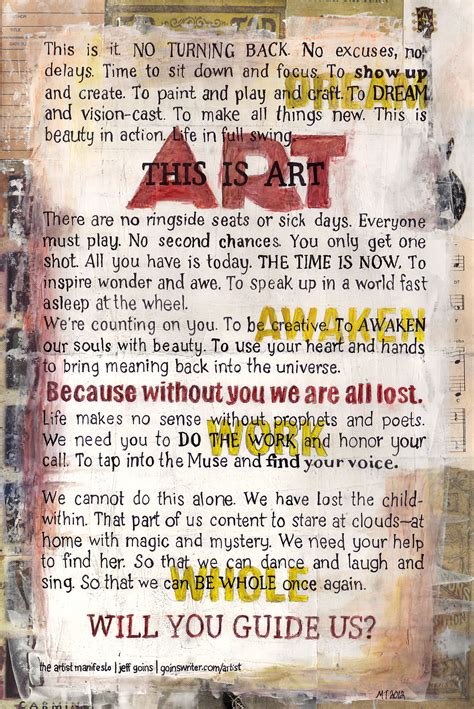 This is it. NO TURNING BACK. No excuses, no
delays. Time to sit down and focus. To show up
and create. To paint and play and craft. To DREAM
DREAM
and vision-cast. To make all things new. This is
beauty in action. Life in full swing.
ART
THIS IS ART
There are no ringside seats or sick days. Everyone
must play. No second chances. You only get one
shot. All you have is today. THE TIME IS NOW. To
inspire wonder and awe. To speak up in a world fast
asleep at the wheel.
We're counting on you. To be creative. To AWAKEN
AWAKEN
our souls with beauty. To use your heart and hands
to bring meaning back into the universe.
Because without you we are all lost.
Life makes no sense without prophets and poets.
We need you to DO THE WORK and honor your
WORK
call. To tap into the Muse and find your voice.
We cannot do this alone. We have lost the child-
within. That part of us content to stare at clouds—at
home with magic and mystery. We need your help
to find her. So that we can dance and laugh and
sing. So that we can BE WHOLE once again.
WHOLE
WILL YOU GUIDE US?
the artist manifesto | jeff goins | goinswriter.com/artist
MF2012